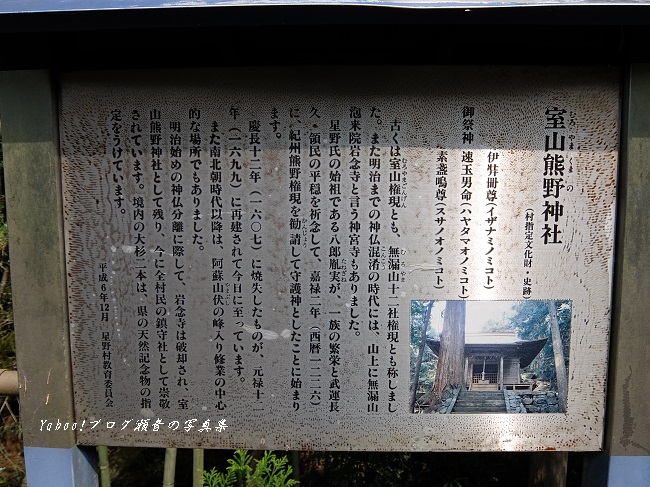 室山熊野神社
むろやまくまの
(村指定文化財・史跡)
伊弉冊尊(イザナミノミコト)
御祭神 速玉男命(ハヤタマオノミコト)
素盞鳴尊(スサノオノミコト)
古くは室山権現とも、無漏山十二社権現とも称しまし
た。また明治までの神仏混淆の時代には、山上に無漏山
泡来院岩念寺と言う神宮寺もありました。
星野氏の始祖である八郎胤実が、一族の繁栄と武運長
久・領民の平穏を祈念して、嘉禄二年(西暦一二二六)
に、紀州熊野権現を勧請して守護神としたことに始まり
ます。
慶長十二年(一六〇七)に焼失したものが、元禄十二
年(一六九九)に再建されて今日に至っています。
また南北朝時代以降は、阿蘇山伏の峰入り修業の中心
的な場所でもありました。
明治始めの神仏分離に際して、岩念寺は破却され、室
山熊野神社として残り、今に全村民の鎮守社として崇敬
されています。境内の大杉二本は、県の天然記念物の指
定をうけています。
平成6年12月 星野村教育委員会
Yahoo!ブログ瀬音の写真集